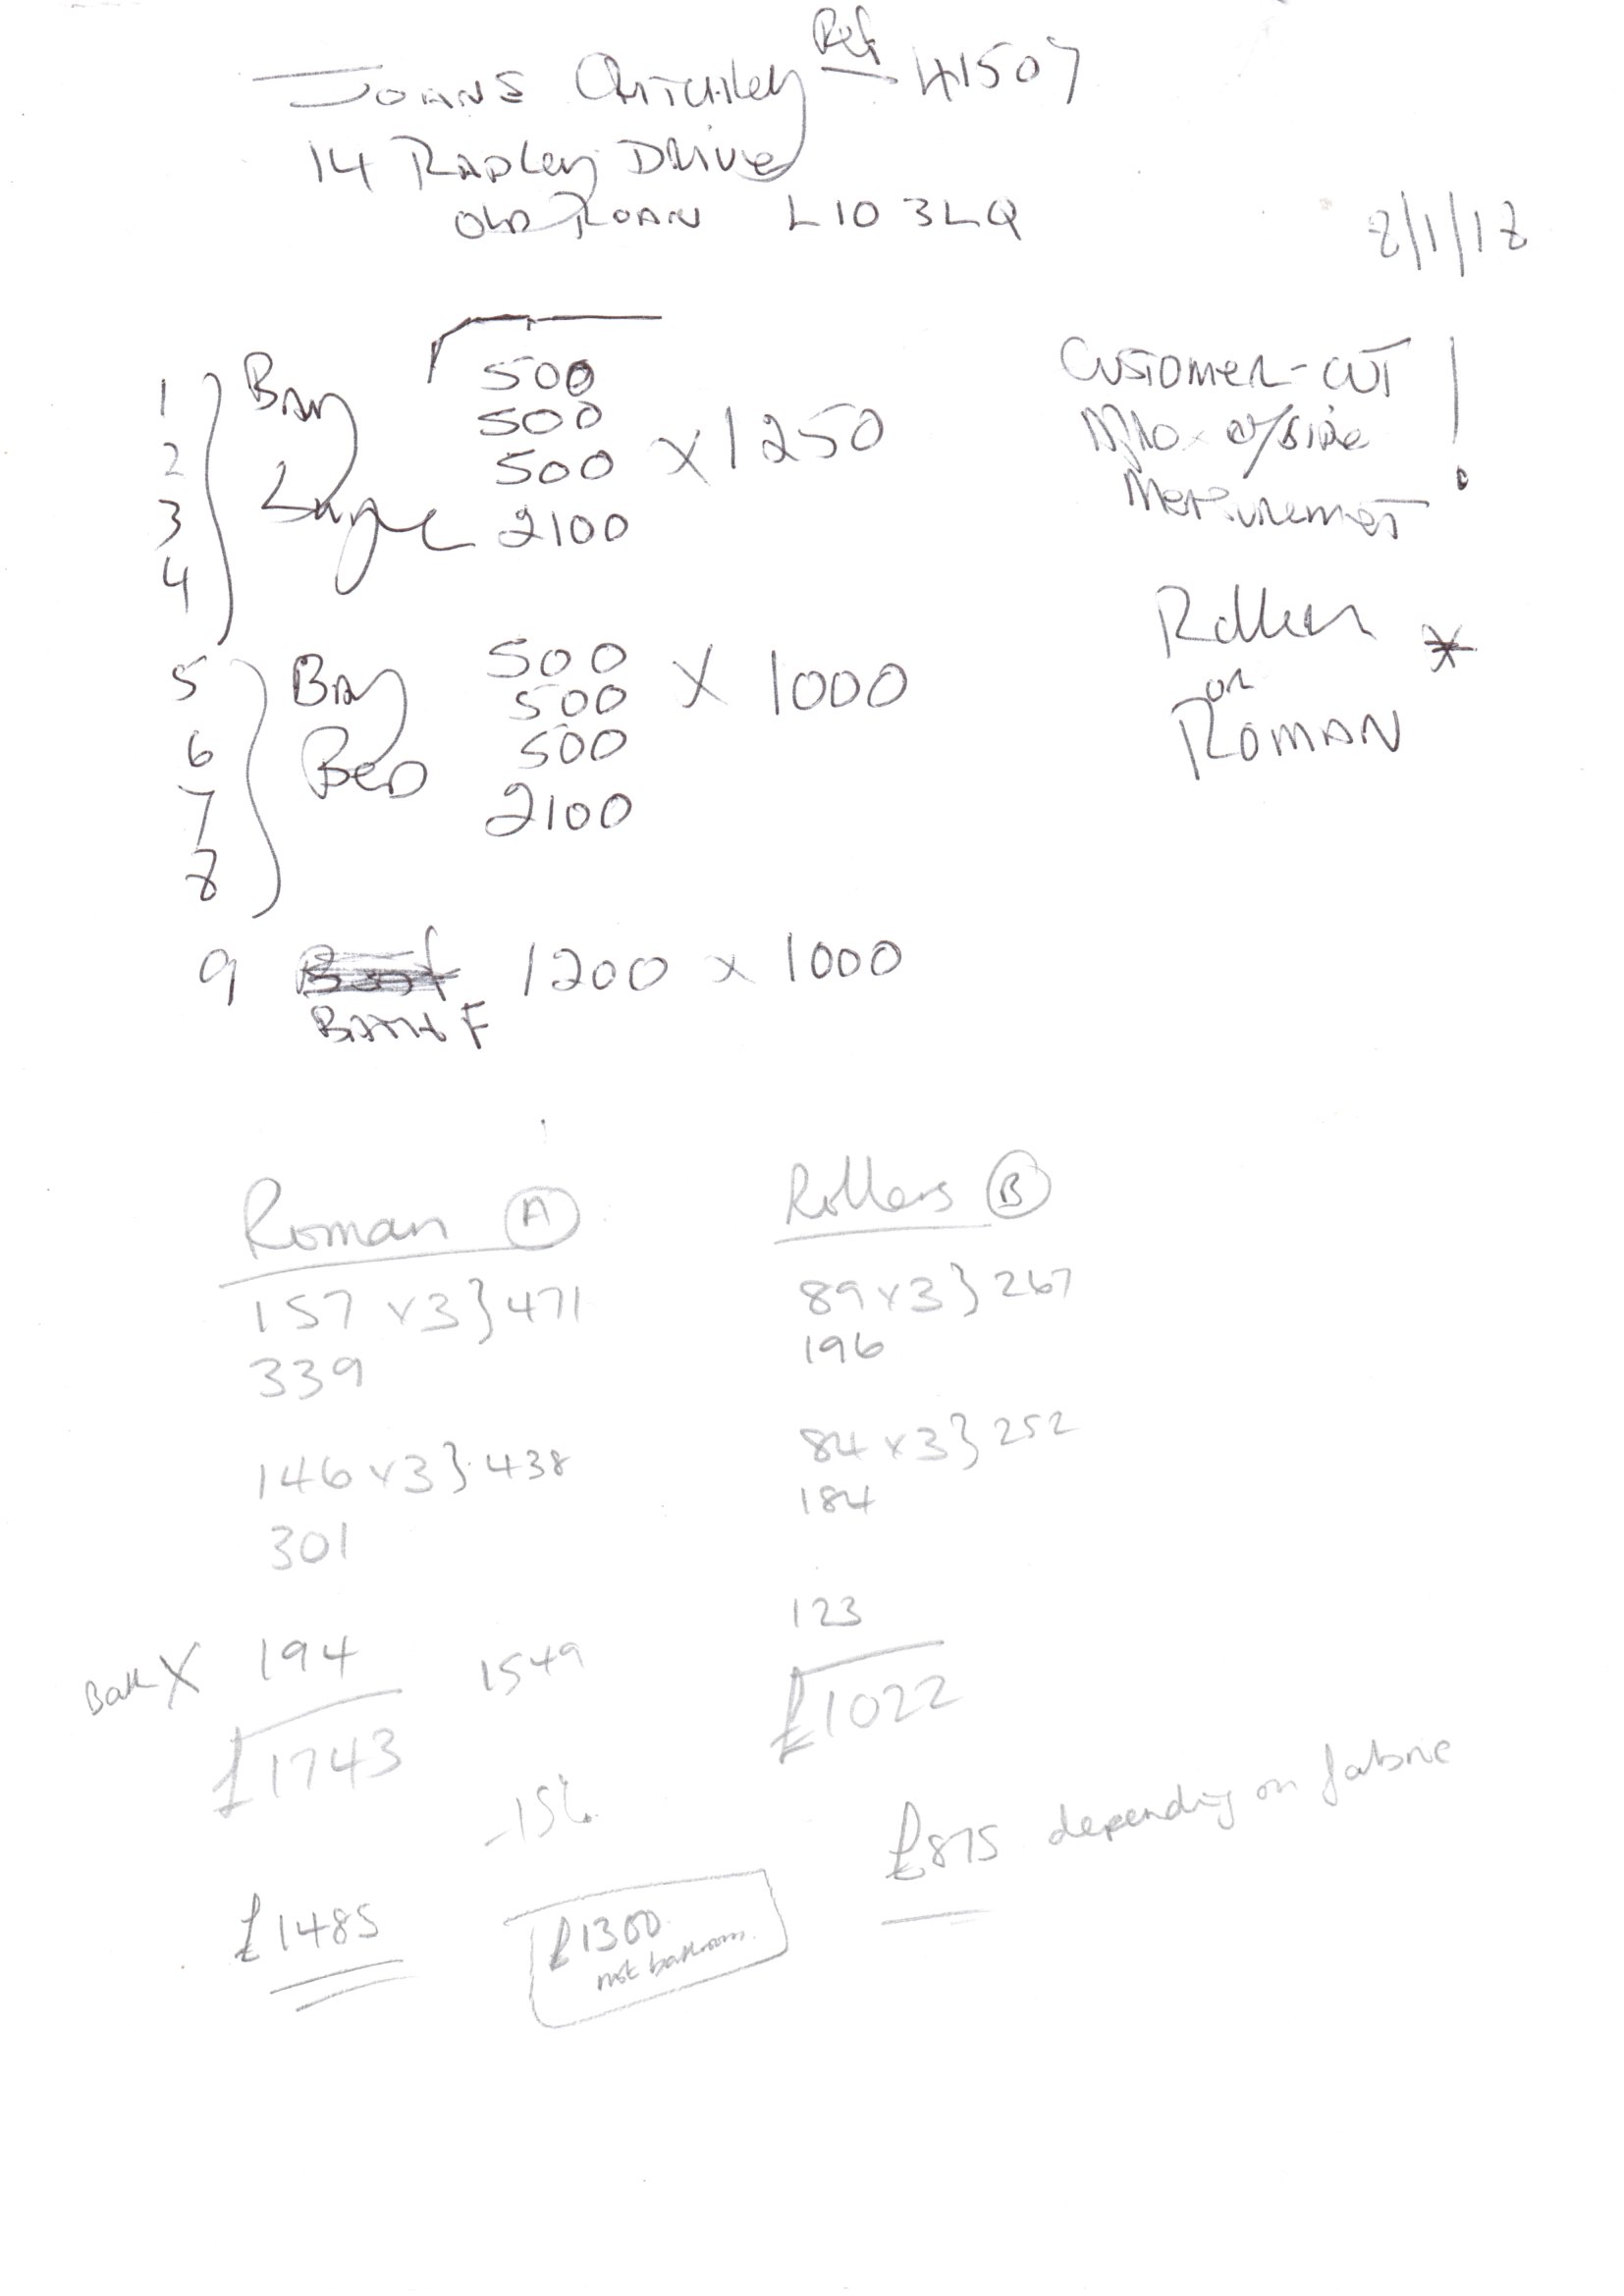 Ref
JOANNE Critchley 41507
14 RADLEY DRIVE
OLD ROAN L10 3LQ
8/1/18
1 BAY 500
2 500 x 1250
3 Lounge 500
4 2100
CUSTOMER - CUT !
O/SIDE
MEASUREMENT
Roller *
OR
ROMAN
5 BAY 500 x 1000
6 BED 500
7 500
8 2100
9 1200 x 1000
F
Roman A
157 x 3 } 471
339
146 x 3 } 438
301
Bath X 194 1549
£1743
-15%
£1485
£1300
not bathroom.
Rollers B
89 x 3 } 267
196
84 x 3 } 252
184
123
£1022
£875 depending on fabric